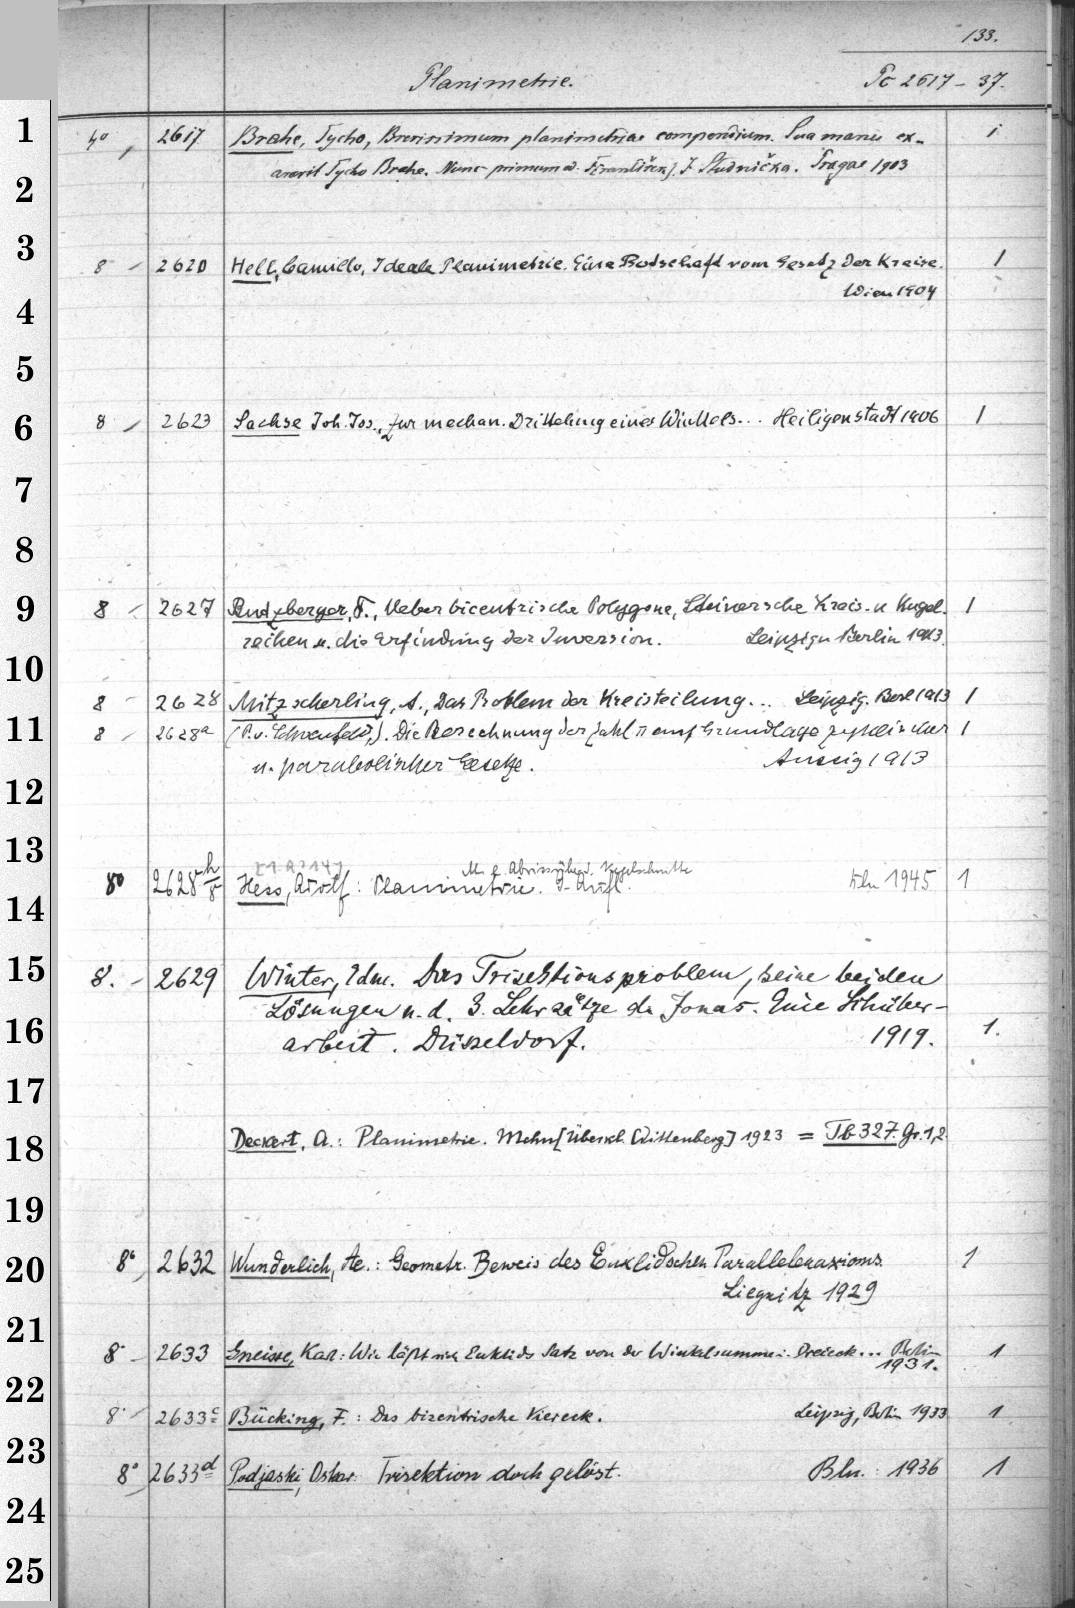 133.
Planimetrie. Pc 2617 - 37.
1 4° 2617 Brahe, Tycho, Brevissimum planimetriae compendium. Sua manu ex-  1
aravit Tycho Brahe. Nunc primum ed. F[rantišek]. J. Studnička. Pragae 1903
2
3 8 2620 Hell, Camillo, Ideale Planimetrie. Eine Botschaft vom Gesetz der Kreise. 1
Wien 1904
4
5
6 8 2623 Sachse Joh. Jos., Zur mechan. Drittelung eines Winkels... Heiligenstadt 1906 1
7
8
9 8 2627 Butzberger, F., Ueber bicentrische Polygone, Steinersche Kreis- u Kugel- 1
reihen u. die Erfindung der Inversion. Leipzig u Berlin 1913.
10
8 2628 Mitzscherling, A., Das Problem der Kreisteilung... Leipzig. Berl 1913 1
11 8 2628a (P. v. Schaewen). Die Berechnung der Zahl π auf Grundlage zyklischer 1
u. parabolischer Gesetze. Aussig 1913
12
13
M. e. Abriss üb. d. Kegelschnitte
8° 2628 h/8 Hess, Adolf: Planimetrie. Aufl. Bln 1945 1
14
15 8°. 2629 Winter, Edm. Das Trisektionsproblem, seine beiden
Lösungen u. d. 3. Lehrsätze de Jonas. Eine Schüler-
16 arbeit. Düsseldorf. 1919. 1.
17
18 Deckert, A.: Planimetrie. Mehn [Überschl. Wittenberg] 1923 = Tb 327. Gr. 1,2
19
20 8° 2632 Wunderlich, Ae.: Geometr. Beweis des Euklidschen Parallelenaxioms. 1
Liegnitz 1929
21
8° 2633 Gneisse, Karl: Wie läßt sich Euklids Satz von der Winkelsumme i. Dreieck... Berlin 1
1931.
22
8° 2633c Bücking, F.: Das bizentrische Viereck. Leipzig, Berlin 1933 1
23
8° 2633d Podjaski, Oskar: Trisektion doch gelöst. Bln. 1936 1
24
25